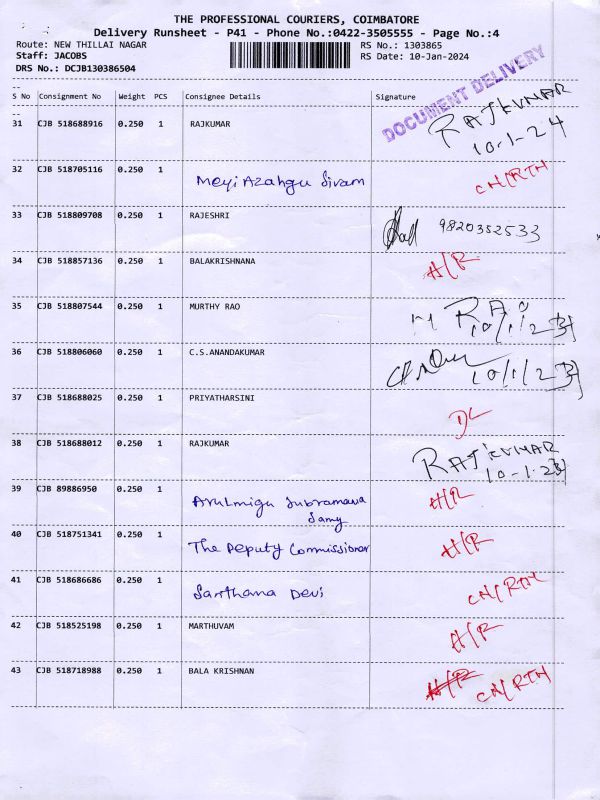 THE PROFESSIONAL COURIERS, COIMBATORE
Delivery Runsheet - P41 - Phone No.:0422-3505555 - Page No.:4
Route: NEW THILLAI NAGAR RS No.: 1303865
Staff: JACOBS RS Date: 10-Jan-2024
DRS No.: DCJB130386504
DOCUMENT DELIVERY
S No Consignment No Weight PCS Consignee Details Signature
31 CJB 518688916 0.250 1 RAJKUMAR RAJKUMAR
10-1-24
32 CJB 518705116 0.250 1 Meyi Azahgu Sivam CN/RTH
33 CJB 518809708 0.250 1 RAJESHRI 9820352533
34 CJB 518857136 0.250 1 BALAKRISHNANA H/R
35 CJB 518807544 0.250 1 MURTHY RAO M RAO
10/1/23
36 CJB 518806060 0.250 1 C.S.ANANDAKUMAR
10/1/23
37 CJB 518688025 0.250 1 PRIYATHARSINI DL
38 CJB 518688012 0.250 1 RAJKUMAR RAJKUMAR
10-1-23
39 CJB 89886950 0.250 1 Arulmigu Subramana H/R
Samy
40 CJB 518751341 0.250 1 The Deputy Commissioner H/R
41 CJB 518686686 0.250 1 Sarthana Devi CN/RTH
42 CJB 518525198 0.250 1 MARTHUVAM H/R
43 CJB 518718988 0.250 1 BALA KRISHNAN H/R CN/RTH